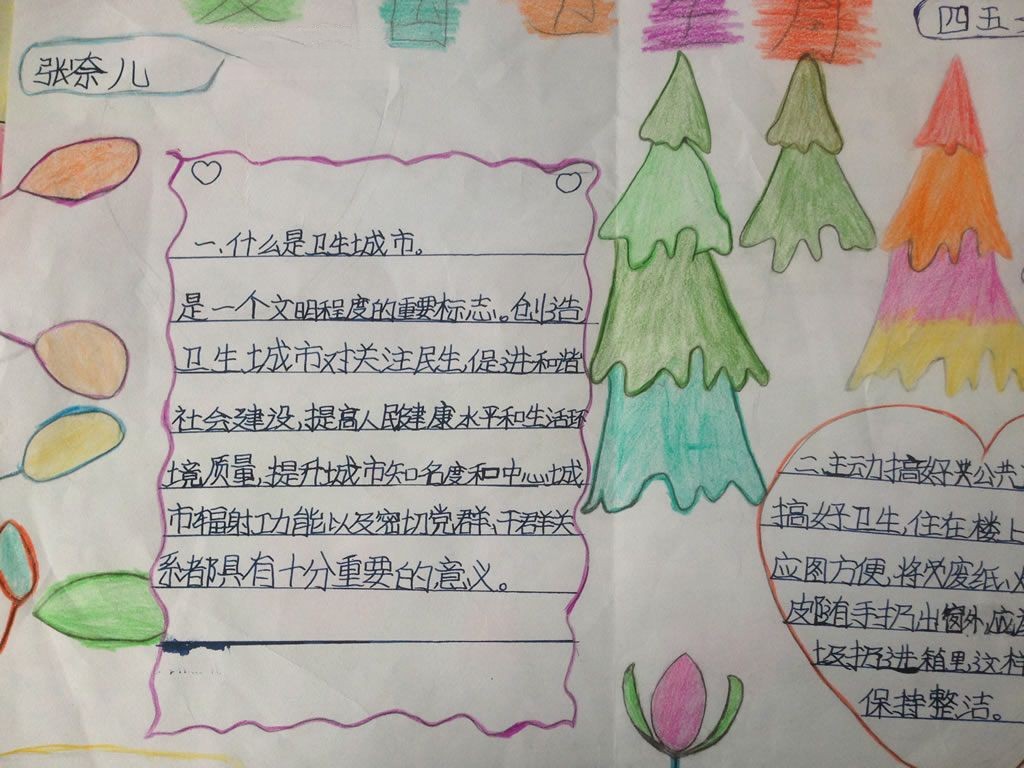 四五
张奈儿
一、什么是卫生城市。
是一个文明程度的重要标志。创造
卫生城市对关注民生,促进和谐
社会建设,提高人民健康水平和生活环
境质量,提升城市知名度和中心城
市辐射功能以及密切党群、干群关
系都具有十分重要的意义。
二、主动搞好公共
搞好卫生,住在楼上
应图方便,将废纸、
皮随手扔出窗外,应
圾扔进箱里这样
保持整洁。